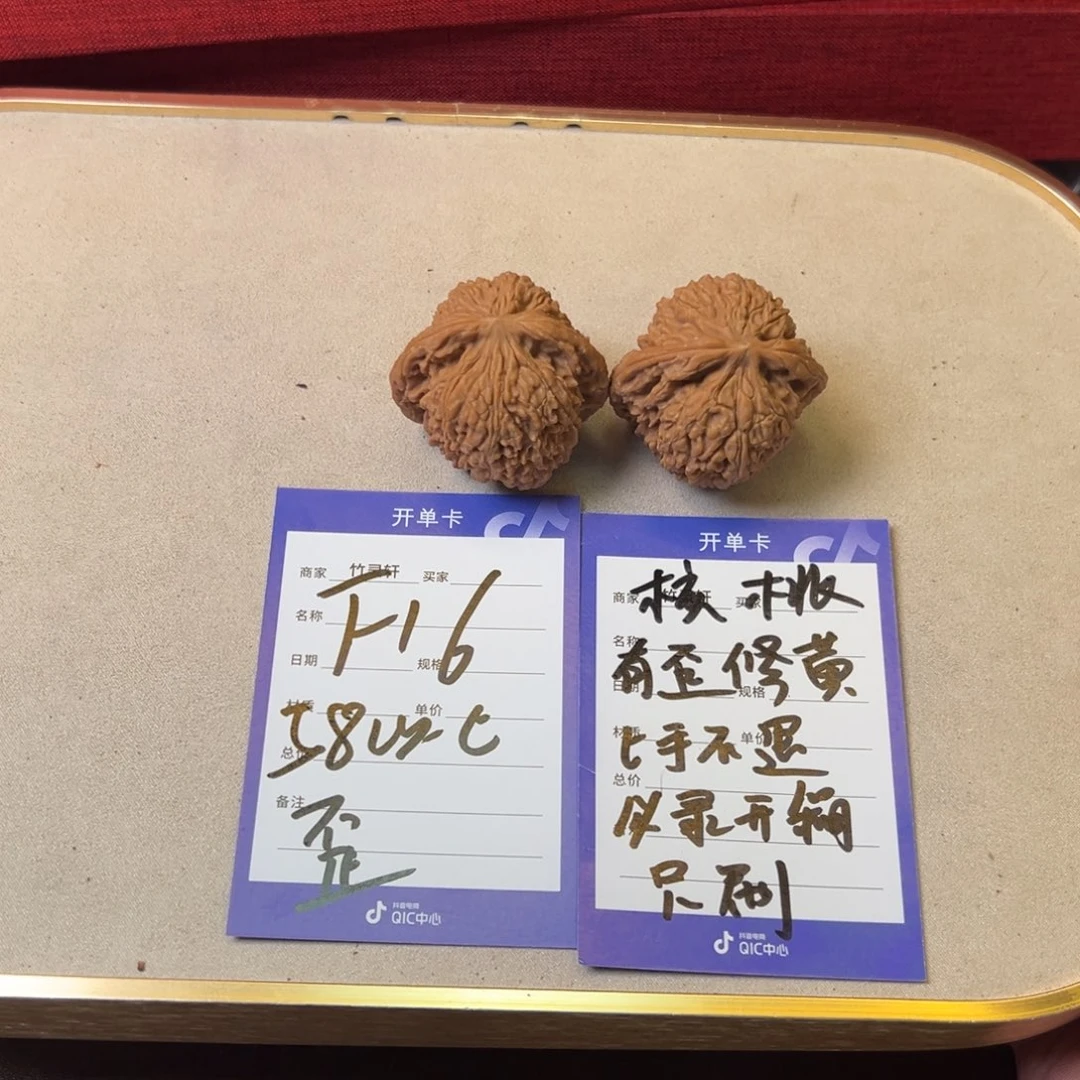 开单卡
商家 竹灵轩 买家
名称
F16
日期 规格
材质 单价
总价
备注
歪
抖音电商
QIC中心
开单卡
商家 轩
核桃
名称
有歪修黄
日期 规格
材质 单价
上手不退
总价
必录开箱
只刷
抖音电商
QIC中心